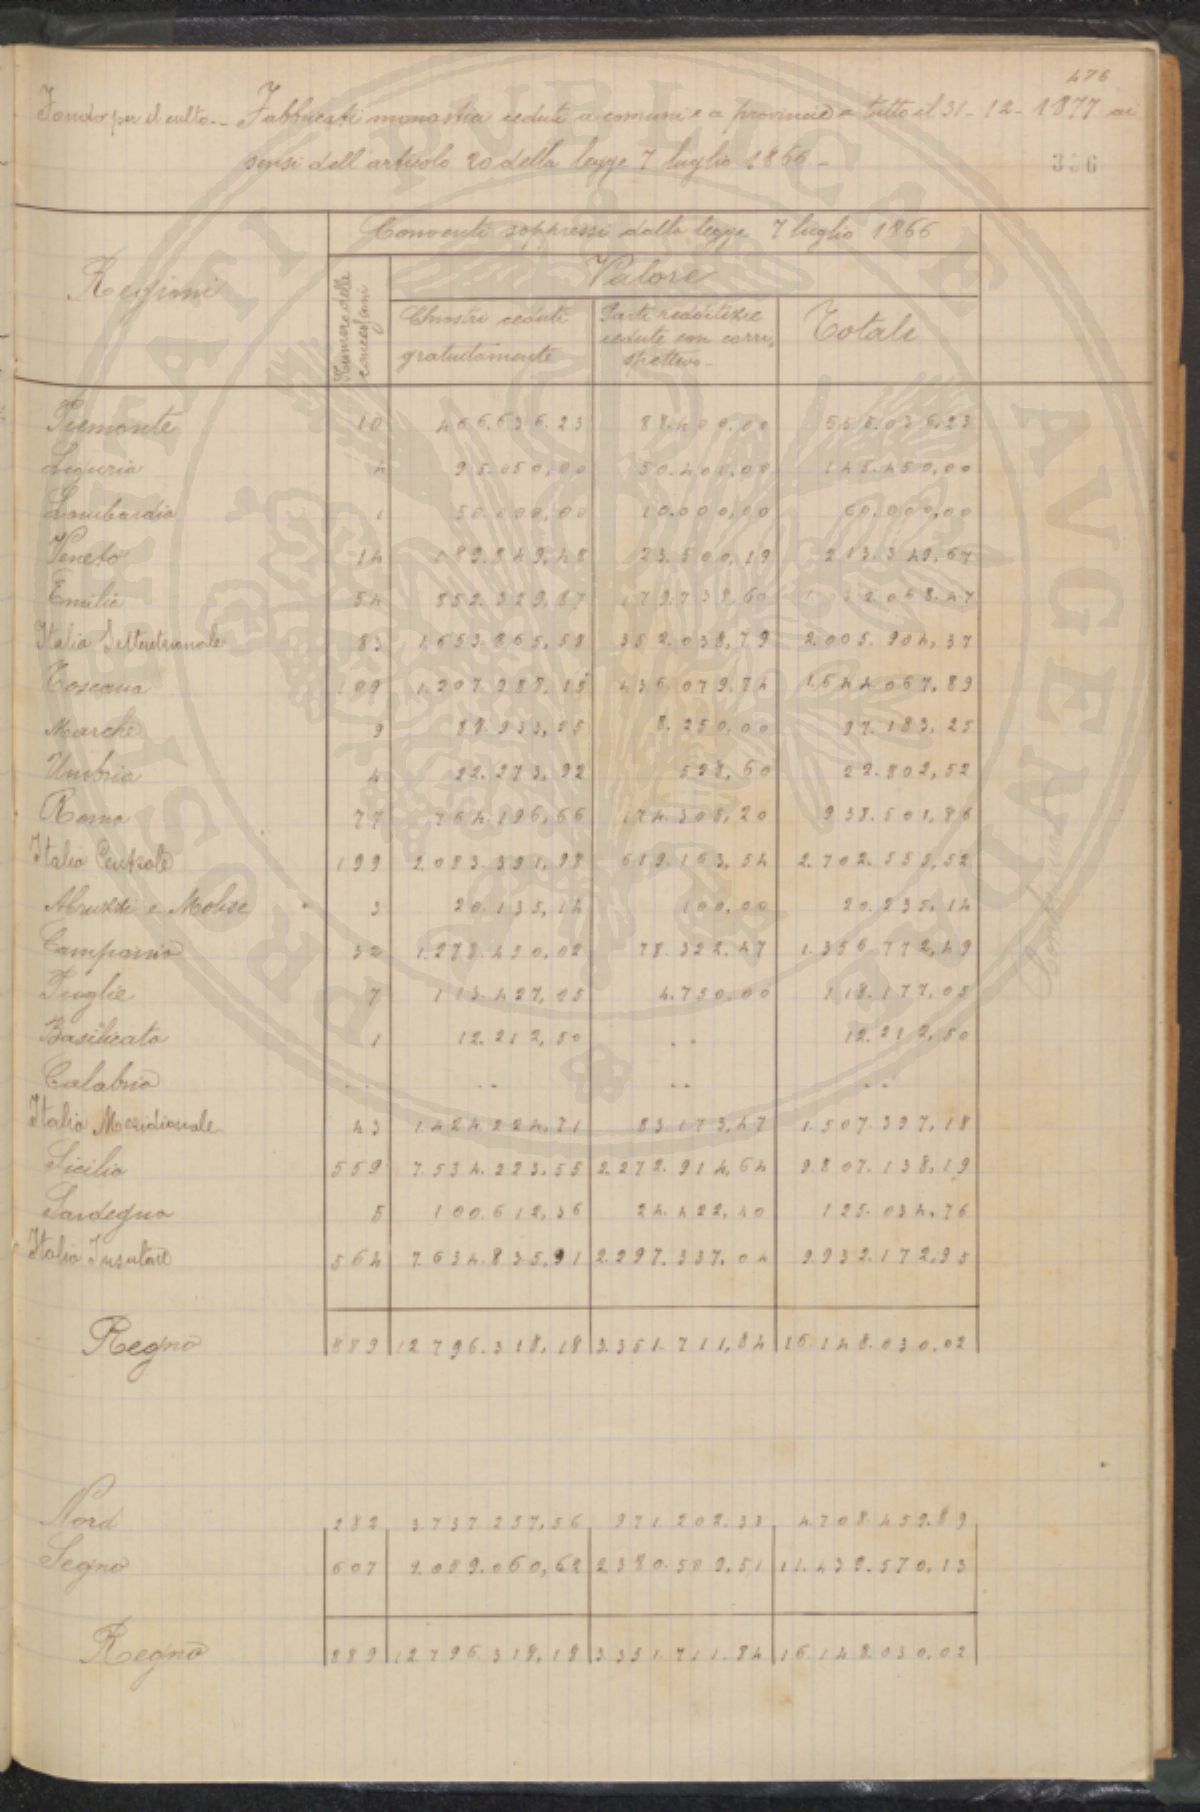 476
Fondo per il culto. - Fabbricati monastici ceduti a comuni e a provincie a tutto il 31 - 12 - 1877 ai
sensi dell'articolo 20 della legge 7 luglio 1866 -
386
Regioni
Conventi soppressi dalla legge 7 luglio 1866
Numero delle concessioni
Valore
Chiostri ceduti gratuitamente
Parti redditizie cedute con corrispettivo -
Totale
Piemonte 10 466.636.23 88.400.00 555.036,23
Liguria 4 95.050,00 50.400,00 145.450,00
Lombardia 1 50.000,00 10.000,00 60.000,00
Veneto 14 189.849,48 23.500,19 213.349,67
Emilia 54 852.329,87 179.738,60 1.032.068.47
Italia Settentrionale 83 1.653.865,58 352.038,79 2.005.904,37
Toscana 109 1.207.988,15 436.079.74 1.644.067,89
Marche 9 88.933,25 8.250.00 97.183,25
Umbria 4 22.273,92 528,60 22.802,52
Roma 77 764.196,66 174.305,20 938.501,86
Italia Centrale 199 2.083.391,98 619.163,54 2.702.555,52
Abruzzi e Molise 3 20.135,14 100,00 20.235,14
Campania 32 1.278.450,02 78.322.47 1.356.772,49
Puglie 7 113.427,05 4.750,00 118.177,05
Basilicata 1 12.212,50 .. 12.212,50
Calabria .. .. .. ..
Italia Meridionale 43 1.424.224,71 83.173,47 1.507.397,18
Sicilia 559 7.534.223.55 2.272.914,64 9.807.138,19
Sardegna 5 100.612,36 24.422,40 125.034,76
Italia Insulare 564 7.634.835,91 2.297.337,04 9.932.172,95
Regno 889 12.796.318,18 3.351.711,84 16.148.030,02
Nord 282 3.737.257,56 971.202.33 4.708.459.89
Segno 607 9.059.060,62 2.380.509,51 11.439.570,13
Regno 889 12.796.318,18 3.351.711.84 16.148.030,02
PROSPERITATI PUBLICAE AUGENDAE